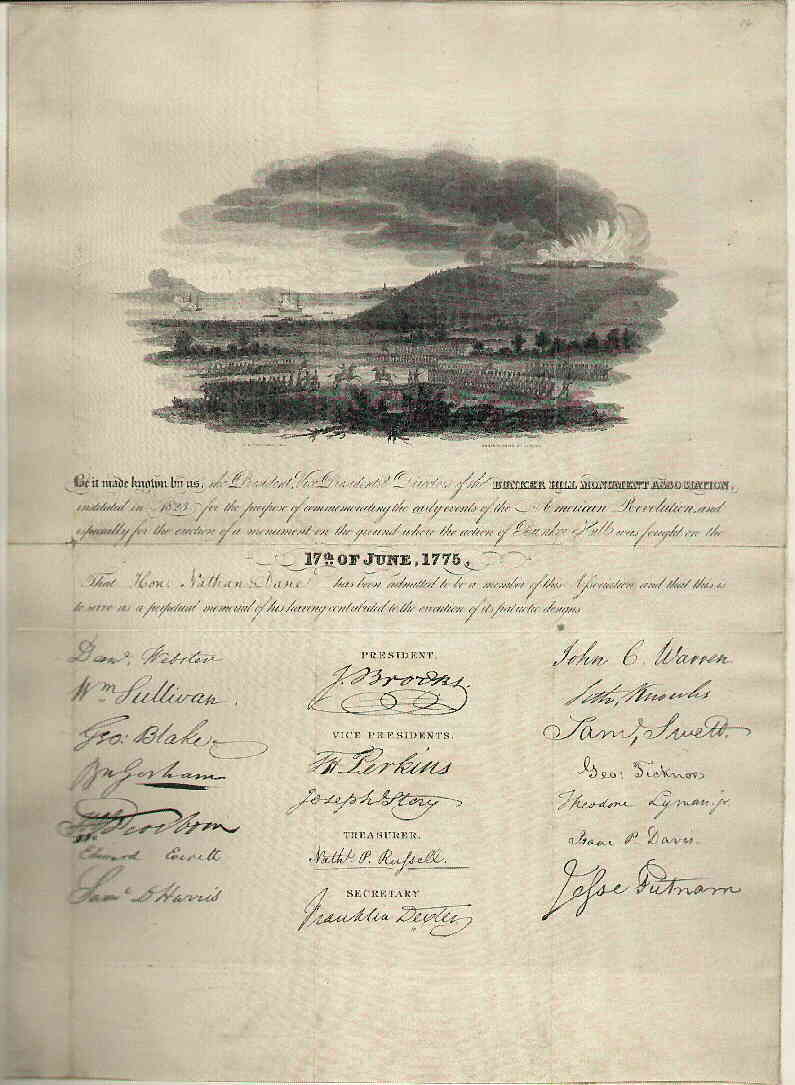 Be it made known by us, the President, Vice Presidents & Directors of the BUNKER HILL MONUMENT ASSOCIATION,
instituted in 1823 for the purpose of commemorating the early events of the American Revolution, and
especially for the erection of a monument on the ground where the action of Bunker Hill was fought on the
17th OF JUNE, 1775,
That Hon: Nathan Dane has been admitted to be a member of this Association and that this is
to serve as a perpetual memorial of his having contributed to the execution of its patriotic designs
Danl. Webster
Wm Sullivan.
Geo: Blake
Bn Gorham
Edward Everett
Saml D Harris
PRESIDENT,
J. Brooks.
VICE PRESIDENTS.
T H Perkins
Joseph Story
TREASURER.
Nathl. P. Russell.
SECRETARY
Franklin Dexter
John C. Warren
Seth Knowles
Saml. Swett.
Geo: Ticknor
Theodore Lyman jr.
Isaac P. Davis.
Jesse Putnam